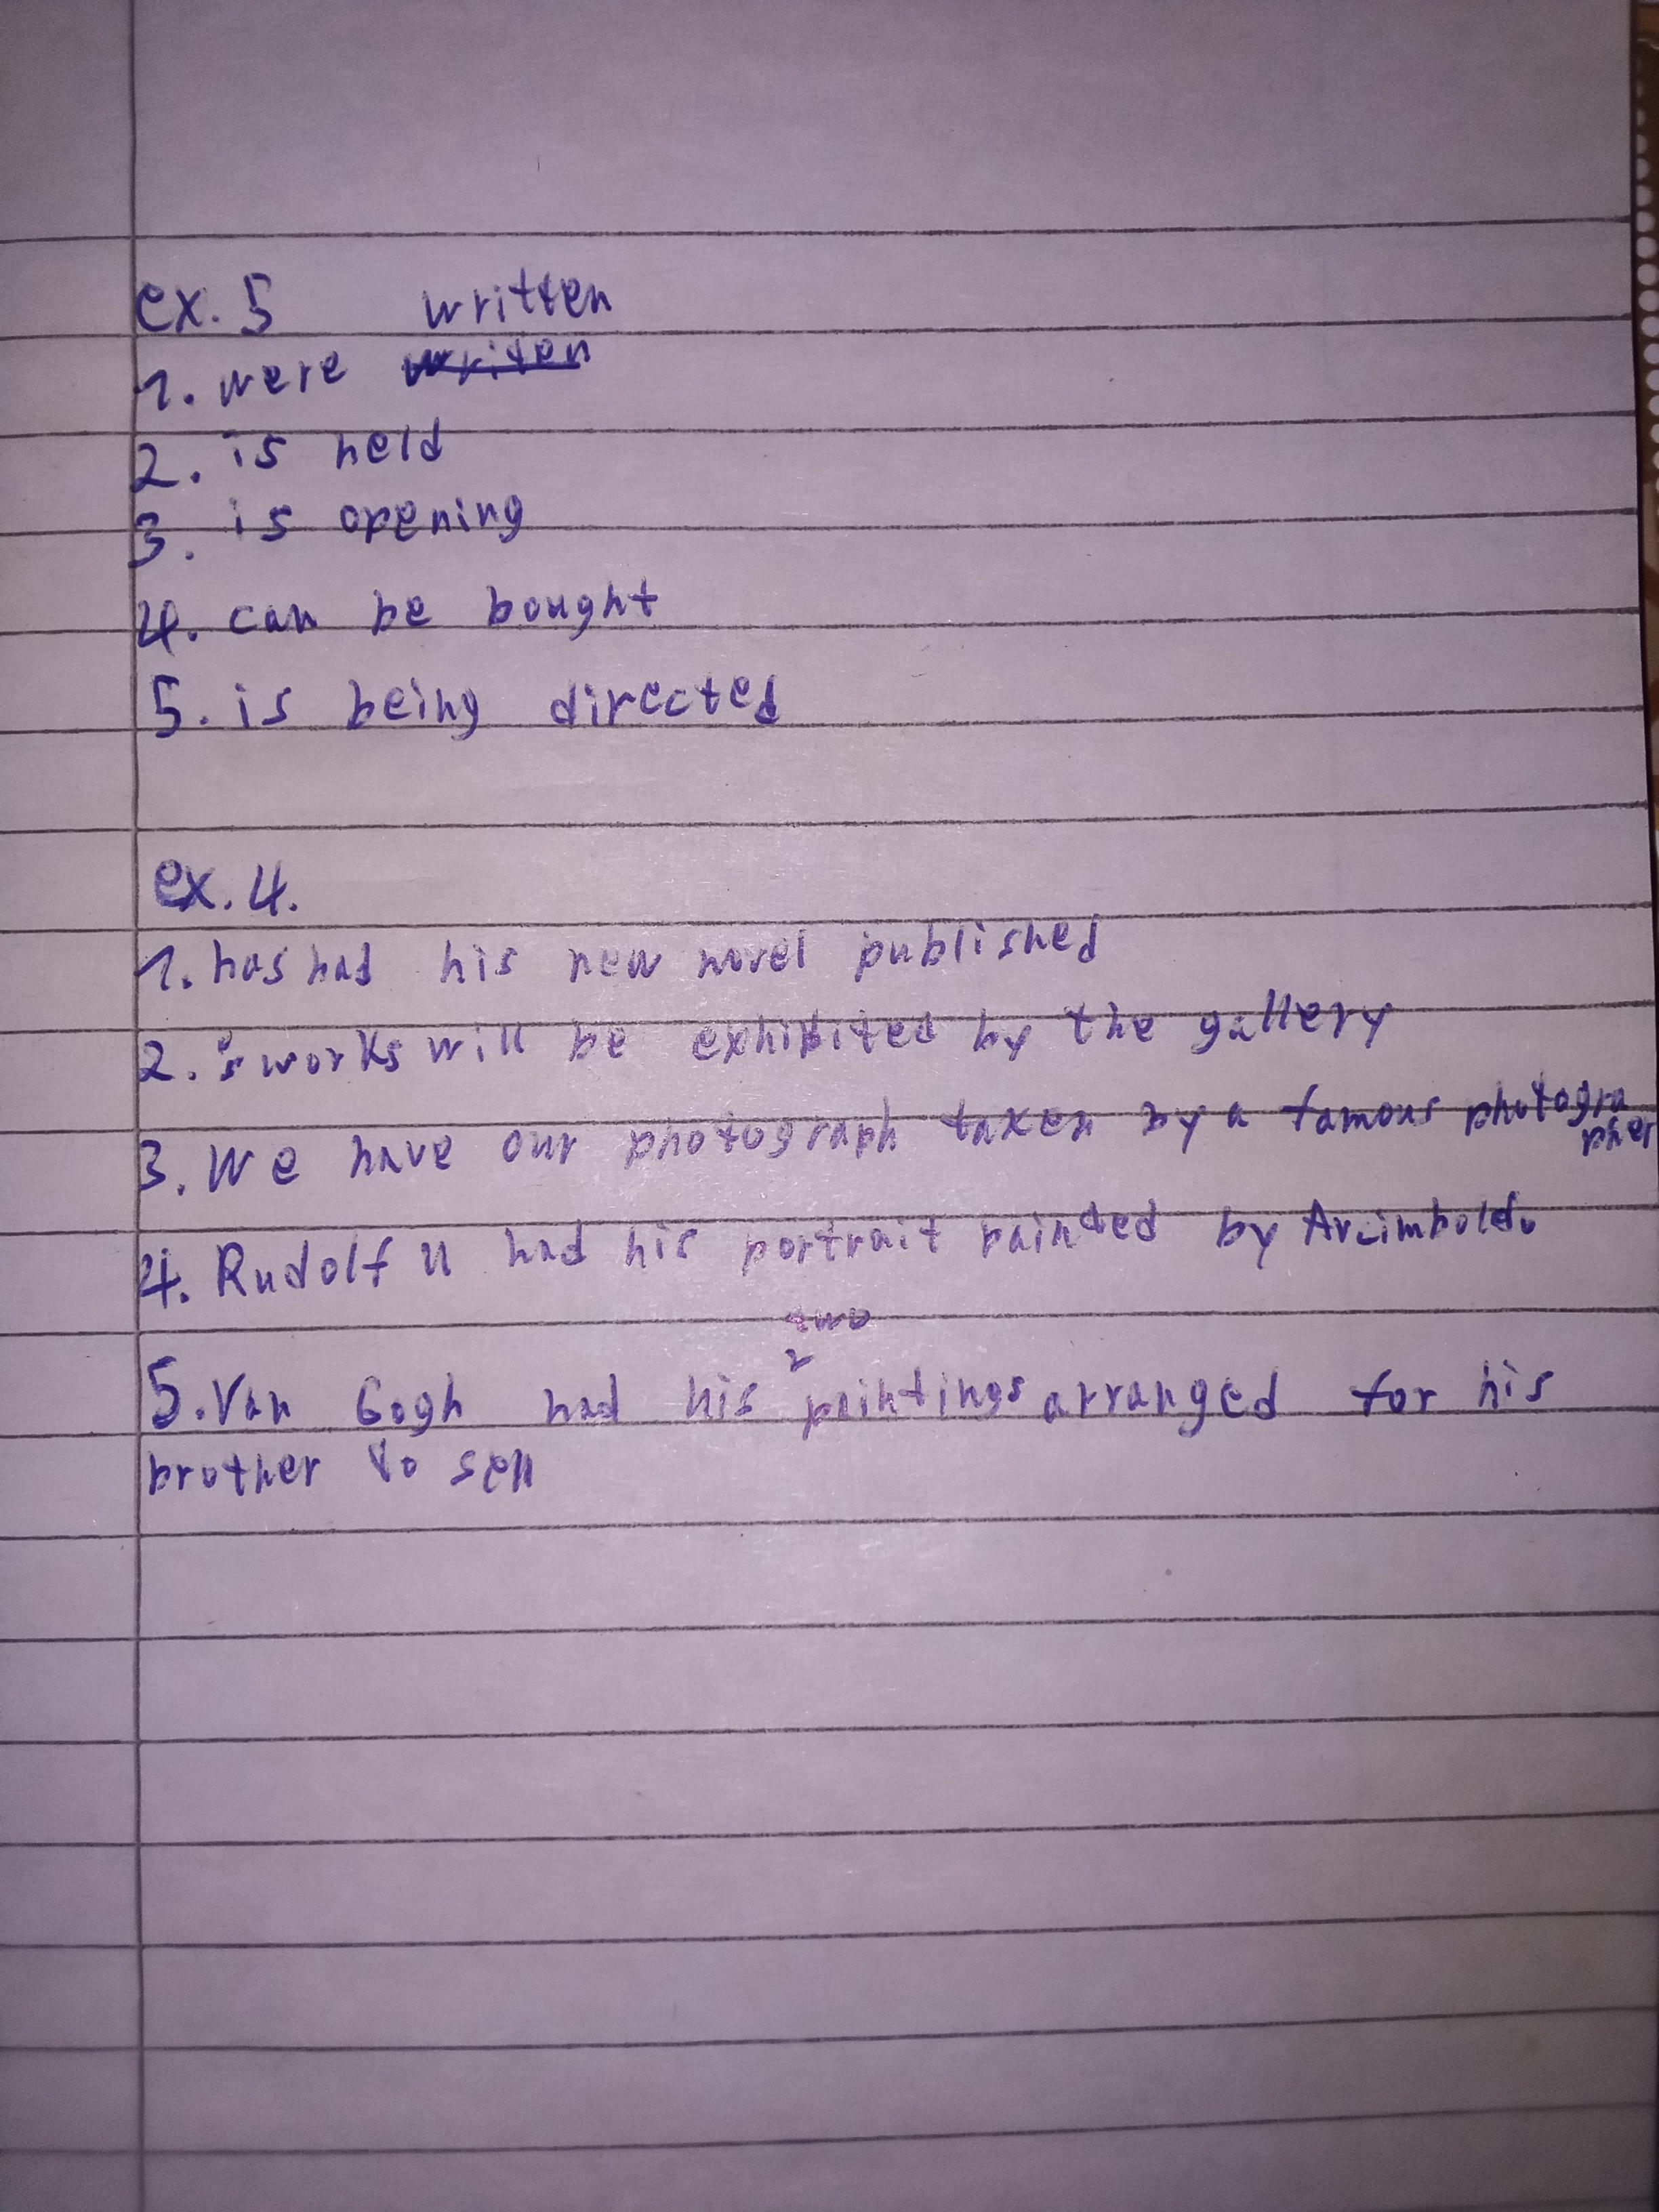 ex. 5 written
1. were writen
2. is held
3. is opening
4. can be bought
5. is being directed
ex. 4.
1. has had his new novel published
2. 's works will be exhibited by the gallery
3. We have our photograph taken by a famous photogra
pher
4. Rudolf II had his portrait painted by Arcimboldo
two
5. Van Gogh had his paintings arranged for his
brother to sell